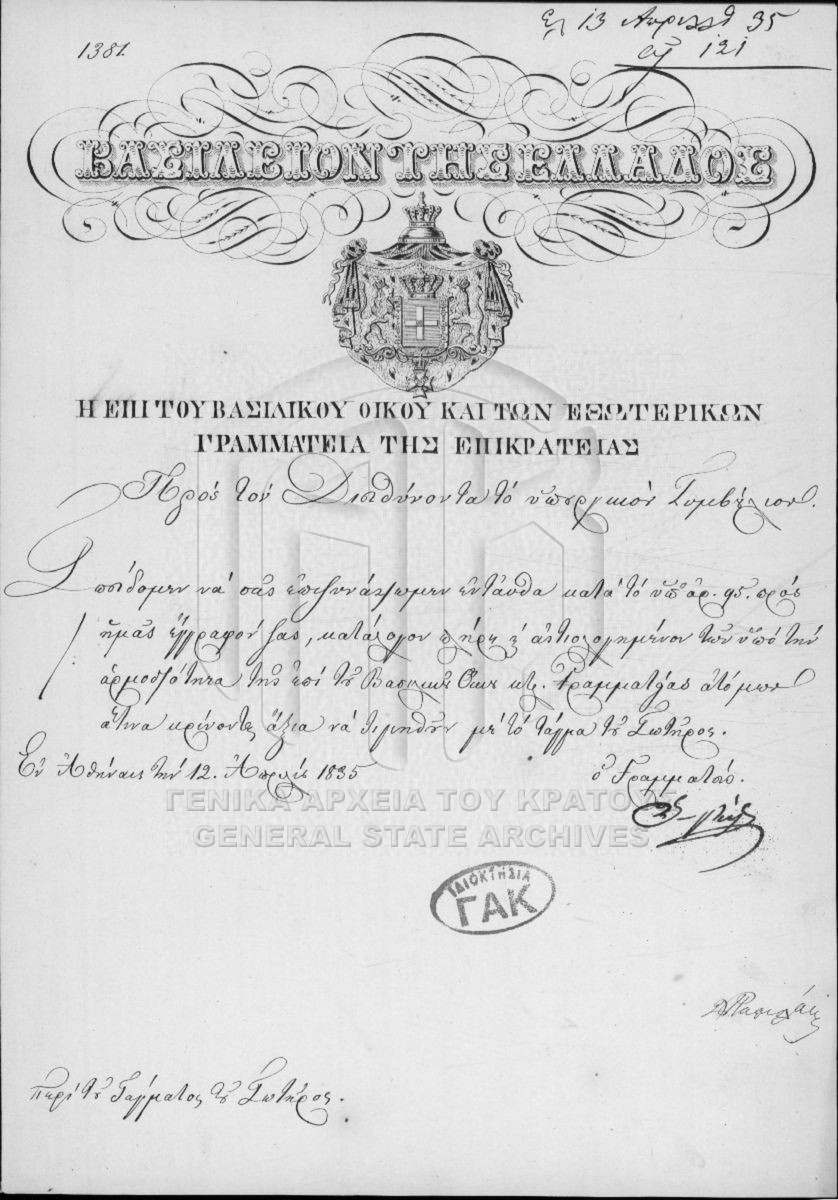 1381.
Ελ 13 Απριλλ 35
αρ 121
ΒΑΣΙΛΕΙΟΝ ΤΗΣ ΕΛΛΑΔΟΣ
Η ΕΠΙ ΤΟΥ ΒΑΣΙΛΙΚΟΥ ΟΙΚΟΥ ΚΑΙ ΤΩΝ ΕΞΩΤΕΡΙΚΩΝ
ΓΡΑΜΜΑΤΕΙΑ ΤΗΣ ΕΠΙΚΡΑΤΕΙΑΣ
Πρός τον Διευθύνοντα τό ὑπουργικόν Συμβούλιον.
Σπεύδομεν νά σᾶς ἐπισυνάψωμεν ἐνταῦθα κατά τό ὑπ' ἀρ. 95. πρός
ἡμᾶς ἔγγραφόν σας, κατάλογον πλήρη ᾐτιολογημένον τῶν ὑπό τήν
ἁρμοδιότητα τῆς ἐπί τοῦ Βασιλικοῦ Οἴκου κτλ. Γραμματείας ἀτόμων
ἅτινα κρίνονται ἄξια νά τιμηθοῦν μέ τό τάγμα τοῦ Σωτῆρος.
Ἐν Ἀθήναις τήν 12. Ἀπριλίου 1835
ὁ Γραμματεύς.
ΓΕΝΙΚΑ ΑΡΧΕΙΑ ΤΟΥ ΚΡΑΤΟΥΣ
GENERAL STATE ARCHIVES
ΙΔΙΟΚΤΗΣΙΑ
ΓΑΚ
περί τοῦ Τάγματος τοῦ Σωτῆρος.